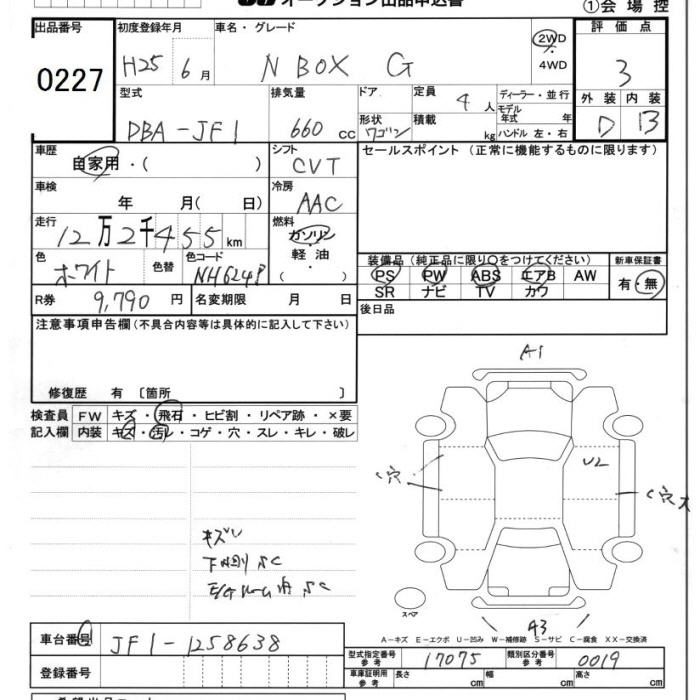 オークション出品申込書
①会場控
出品番号
0227
初度登録年月
H25 6月
車名・グレード
N BOX G
2WD
・
4WD
評価点
3
外装 内装
D B
型式
DBA-JF1
排気量
660 cc
ドア
形状 ワゴン
定員 4人
積載 kg
ディーラー・並行
モデル年式 年
ハンドル 左・右
車歴
自家用・( )
シフト
CVT
セールスポイント (正常に機能するものに限ります)
車検
年 月( 日)
冷房
AAC
走行
12万2千455km
燃料
ガソリン
軽油
( ・ )
色
ホワイト
色替
色コード
NH624P
装備品(純正品に限り○をつけてください)
PS PW ABS エアB AW
SR ナビ TV カワ
新車保証書
有・無
R券 9,790円
名変期限 月 日
後日品
注意事項申告欄(不具合内容等は具体的に記入して下さい)
修復歴 有〔箇所 〕
検査員記入欄
FW キズ・飛石・ヒビ割・リペア跡・×要
内装 キズ・汚レ・コゲ・穴・スレ・キレ・破レ
A1
U2
C穴
C穴大
キズU
下廻り SC
SC
スペア
A3
A-キズ E-エクボ U-凹み W-補修跡 S-サビ C-腐食 XX-交換済
車台番号
JF1-1258638
型式指定番号 参考 17075
類別区分番号 参考 0019
登録番号
車庫証明用 参考 長さ cm 幅 cm 高さ cm